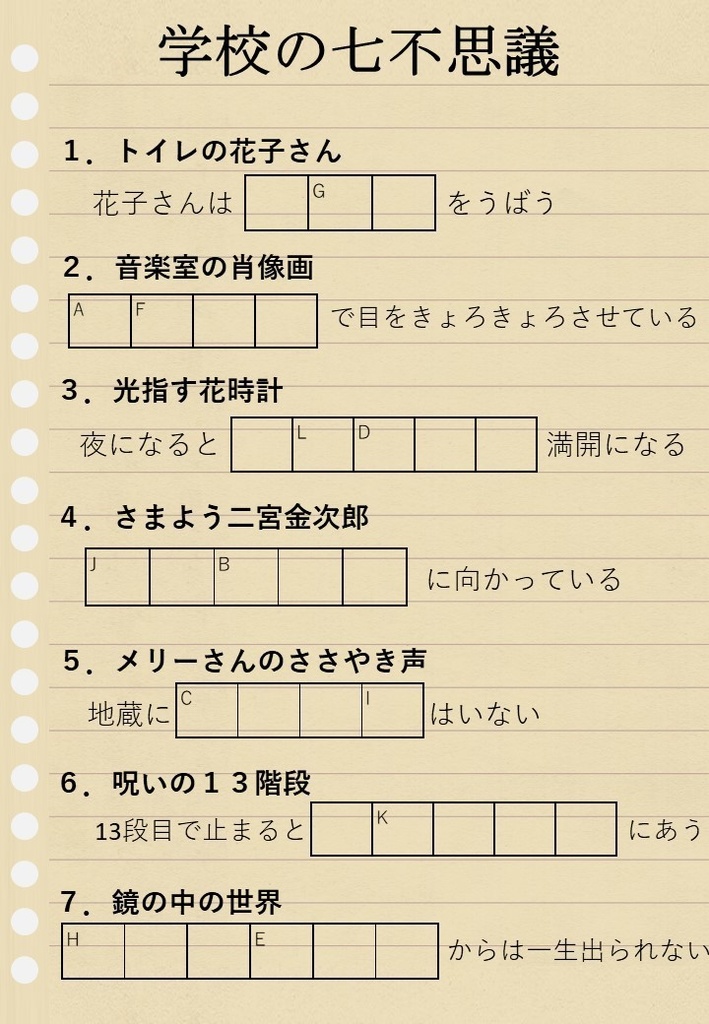 学校の七不思議
１．トイレの花子さん
花子さんは G をうばう
２．音楽室の肖像画
A F で目をきょろきょろさせている
３．光指す花時計
夜になると L D 満開になる
４．さまよう二宮金次郎
J B に向かっている
５．メリーさんのささやき声
地蔵に C I はいない
６．呪いの１３階段
13段目で止まると K にあう
７．鏡の中の世界
H E からは一生出られない